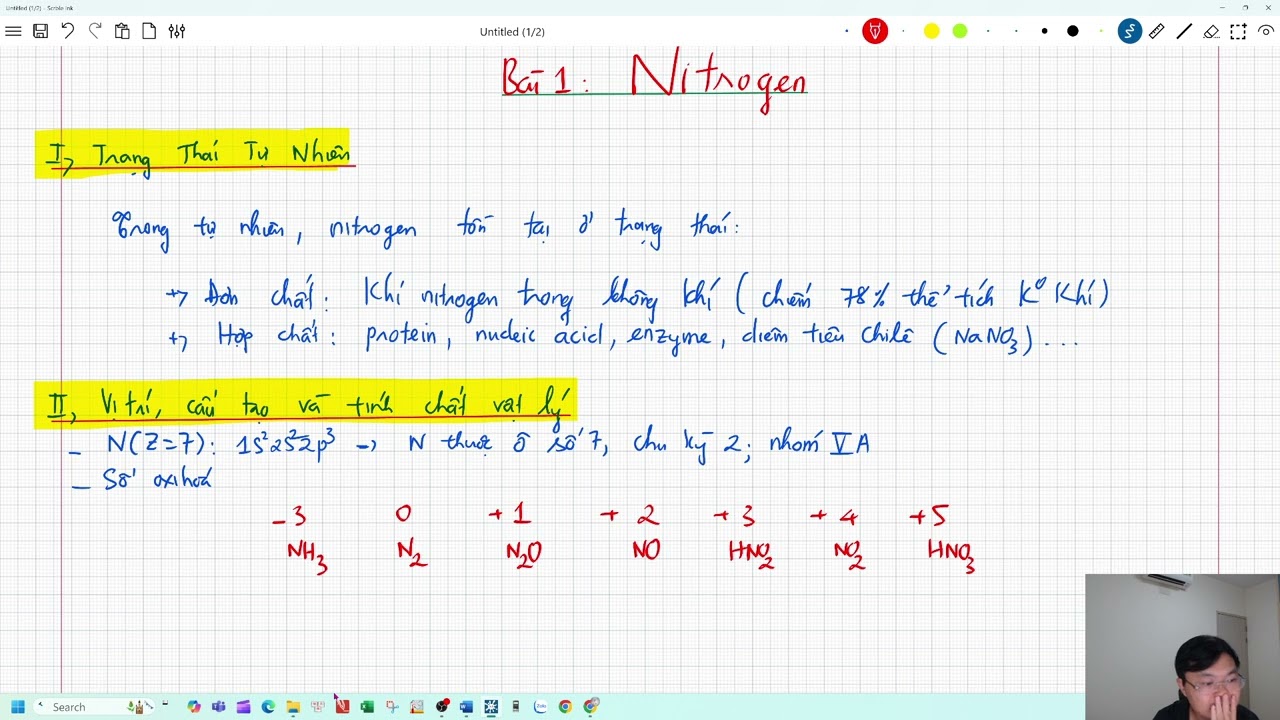 Untitled (1/2) - Scrble Ink
Untitled (1/2)
Bài 1: Nitrogen
I, Trạng Thái Tự Nhiên
Trong tự nhiên, nitrogen tồn tại ở trạng thái:
+, Đơn chất: Khí nitrogen trong không khí (chiếm 78% thể tích K⁰ Khí)
+, Hợp chất: protein, nucleic acid, enzyme, diêm tiêu chilê (NaNO₃)...
II, Vị trí, cấu tạo và tính chất vật lý
- N(Z=7): 1s²2s²2p³ → N thuộc ô số 7, chu kỳ 2; nhóm VA
- Số oxi hoá
-3 0 +1 +2 +3 +4 +5
NH₃ N₂ N₂O NO HNO₂ NO₂ HNO₃
Search